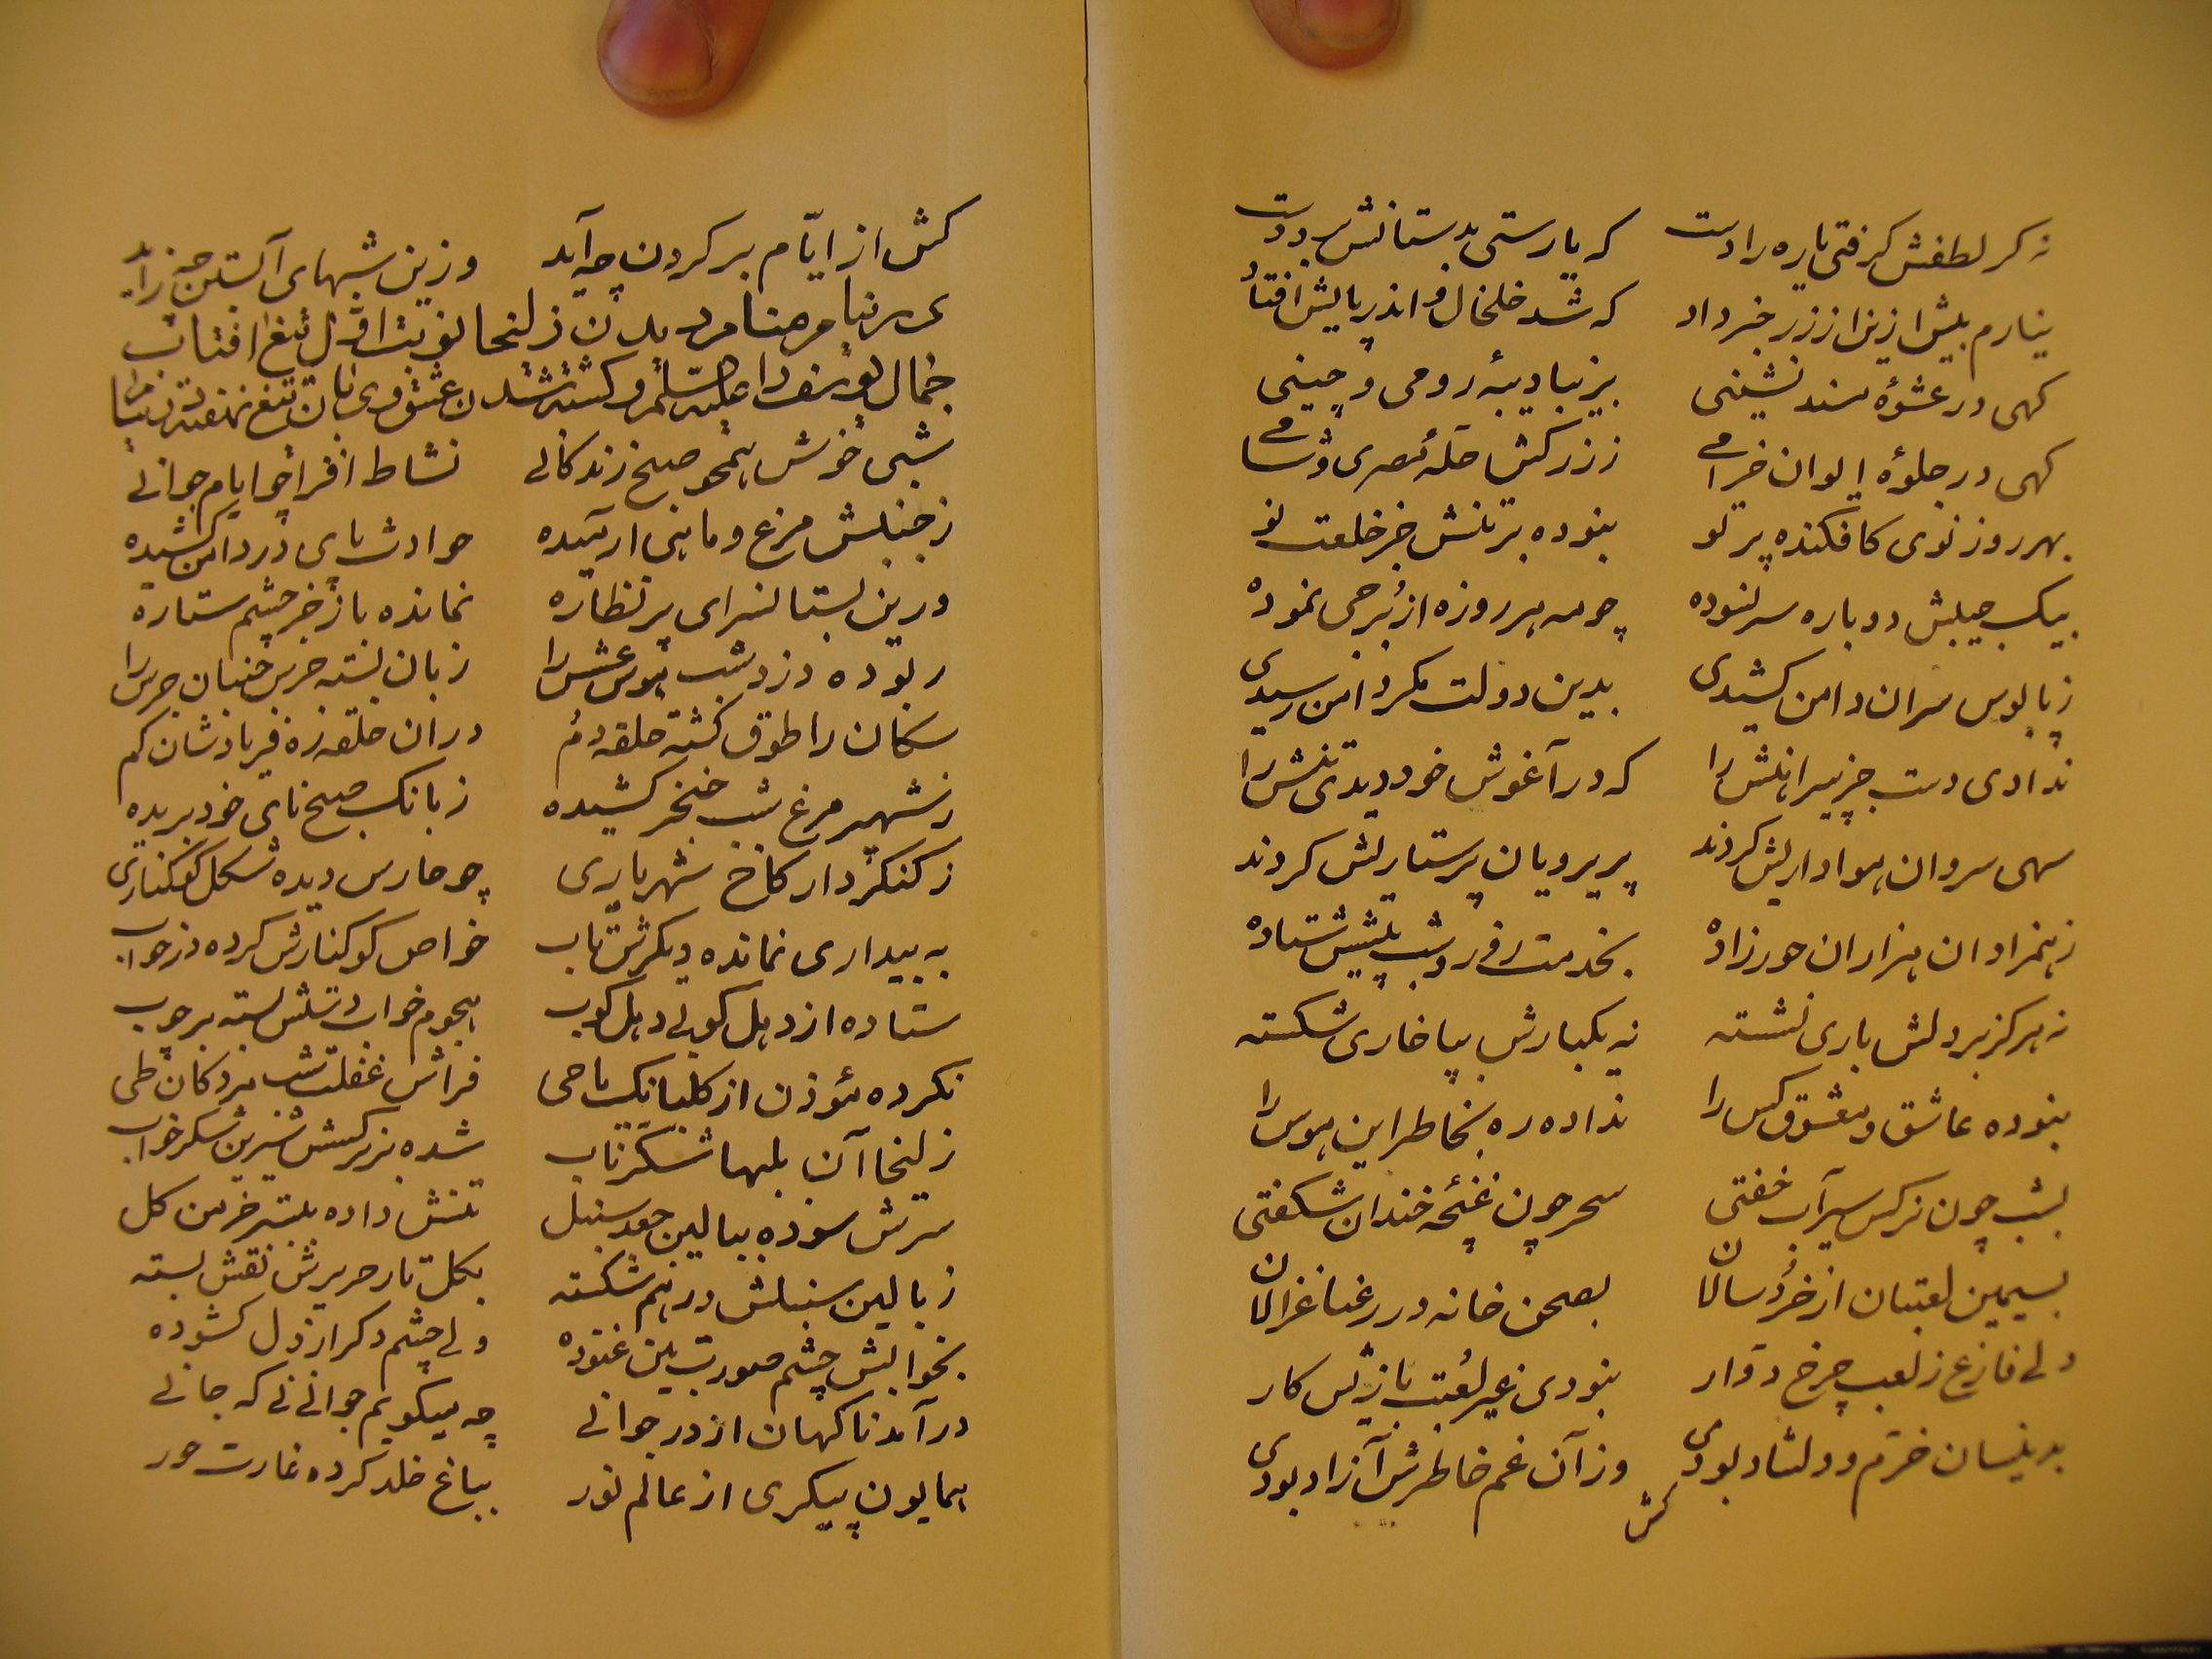 نه گر لطفش گرفتی یاره را دست که یارستی بدستانش برو دست
نیارم بیش ازین از زر خبر داد که شد خلخال و اندر پایش افتاد
گهی در عشوهٔ مسند نشینی بزیبا دیبهٔ رومی و چینی
گهی در جلوهٔ ایوان خرامی ز زرکش حلهٔ مصری و شامی
بهر روز نوی کافکنده پرتو نبوده بر تنش جز خلعت نو
بیک جیبش دوباره سر نسوده چو مه هر روزه از برجی نموده
ز پابوس سران دامن کشیدی بدین دولت مگر دامن رسیدی
ندادی دست جز پیراهنش را که در آغوش خود دیدی تنش را
سهی سروان هواداریش کردند پریرویان پرستاریش کردند
ز همزادان هزاران حورزاده بخدمت روز و شب پیشش ستاده
نه هرگز بر دلش باری نشسته نه یکبارش بپا خاری شکسته
نبوده عاشق و معشوق کس را نداده ره بخاطر این هوس را
بشب چون نرگس سیراب خفتی سحر چون غنچه خندان شکفتی
بسیمین لعبتان از خردسالان بصحن خانه در رعنا غزالان
دلی فارغ ز لعب چرخ دوار نبودی غیر لعبت بازیش کار
بدینسان خرم و دلشاد بودی وز آن غم خاطرش آزاد بودی
کش
کش از ایّام بر گردن چه آید وزین شبهای آبستن چه زاید
شبی خوش همچو صبح زندگانی نشاط افزا چو ایام جوانی
ز جنبش مرغ و ماهی آرمیده حوادث پای در دامن کشیده
درین بستانسرای پر نظاره نمانده باز جز چشم ستاره
ربوده دزد شب هوش عسس را زبان بسته جرس جنبان جرس را
سگان را طوق گشته حلقه دم در آن حلقه ره فریادشان گم
ز شهپر مرغ شب خنجر کشیده ز بانگ صبح نای خود بریده
ز کنگردار کاخ شهریاری چو حارس دیده شکل کوکناری
به بیداری نمانده دیگرش تاب خواص کوکنارش کرده در خواب
ستاده از دهل کوبی دهل کوب هجوم خواب دستش بسته بر چوب
نکرده مؤذن از گلبانگ یا حی فراش غفلت شب مردگان طی
زلیخا آن بلبها شکر ناب شده بر نرگسش شیرین شکر خواب
سرش سوده ببالین جعد سنبل تنش داده ببستر خرمن گل
ز بالین سنبلش در هم شکسته بگل تار حریرش نقش بسته
بخوابش چشم صورت بین غنوده ولی چشم دگر از دل گشوده
در آمد ناگهان از در جوانی چه میگویم جوانی نی که جانی
همایون پیکری از عالم نور بباغ خلد کرده غارت حور